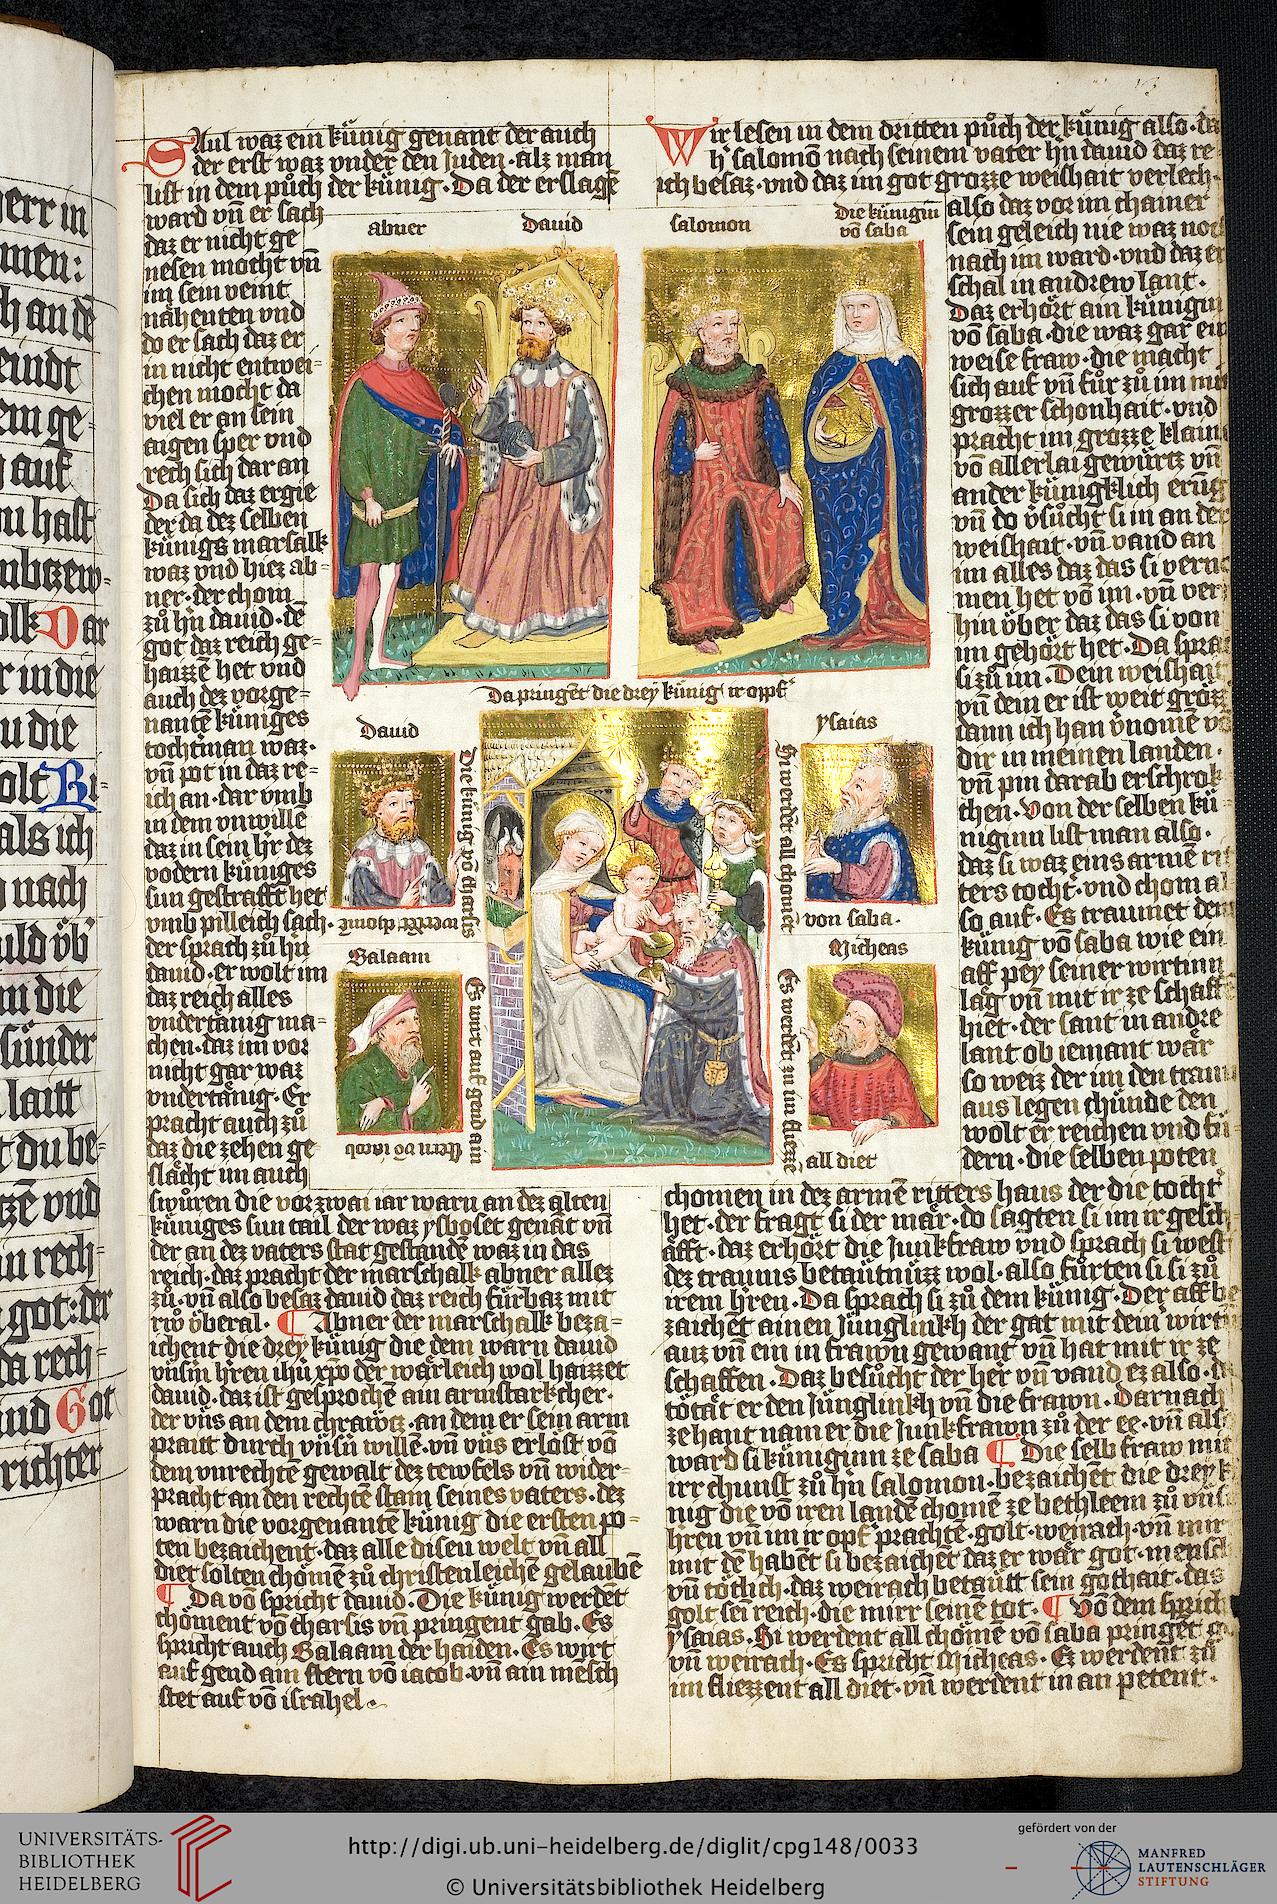 Saul waz ein künig genant der auch
der erst waz vnder den Juden · alz man
list in dem půch der künig · Da der erslagē
ward vn̄ er sach
daz er nicht ge
nesen mocht vn̄
im sein veint
nahenten vnd
do er sach daz er
in nicht entwei-
chen mocht da
viel er an sein
aigen sper vnd
rech sich dar an
Da sich daz ergie
der da dez selben
künigs marsalk
waz vnd hiez ab-
ner · der chom
zů h'n dauid · dē
got daz reich ge-
haizzē het vnd
auch dez vorge-
nantē küniges
tochtman waz ·
vn̄ pot in daz re-
ich an · dar vmb
in dem vnwillē
daz in sein h'r dez
vodern küniges
sun gestrafft het
vmb pilleich sach ·
der sprach zů h'n
dauid · er wolt im
daz reich alles
vndertänig ma-
chen · daz im vor
nicht gar waz
vndertänig · Er
pracht auch zů
daz die zehen ge
slächt im auch
swůren die vor zwai iar warn an dez alten
küniges sun tail der waz ysboset genāt vn̄
der an dez vaters stat gestandē waz in das
reich · daz pracht der marschalk abner allez
zů · vn̄ also besaz dauid daz reich fürbaz mit
rẘ v̈beral · ¶ Abner der marschalk beza-
ichent die drey künig die dem warn dauid
vnsm h'ren ih'u xp̄o der wärleich wol haizzet
dauid · daz ist gesprochē ain armstarkcher ·
der vns an dem chräwtz · an dem er sein arm
prait durch vnsn̄ willē · vn̄ vns erlöst vō
dem vnrechtē gewalt dez tewfels vn̄ wider-
pracht an den rechtē stam seines vaters · dez
warn die vorgenantē künig die ersten po-
ten bezaichent · daz alle diseu welt vn̄ all
diet solten chömē zů christenleichē gelaubē
¶ Da vō spricht dauid · Die künig werdēt
chöment vō tharsis vn̄ pringent gab · Es
spricht auch Balaam der haiden · Es wirt
auf gend ain stern vō iacob · vn̄ ain mēsch
stet auf vō israhel ·
Wir lesen in dem dritten půch der künig also · da
h' salomō nach seinem vater h'n dauid daz re
ich besaz · vnd daz im got grozze weishait verlech ·
also daz vor im chainer
sein geleich nie waz noch
nach im ward · vnd daz er
schal in andrew lant ·
Daz erhört ain künigin
vō saba · die waz gar ein
weise fraw · die macht
sich auf vn̄ für zů im mit
grozzer schonhait · vnd
pracht im grozze klain
vō allerlai gewürtz vn̄
ander künigklich
vn̄ do v̈sůcht si in an der
weishait · vn̄ vand an
im alles daz das si verne
men het vō im · vn̄ ver
hin v̈ber daz das si von
im gehört het · Da sprach
si zů im · Dein weishait
vn̄ dein er ist weit grozz
dann ich han v̈nomē vō
dir in meinen landen ·
vn̄ pin darab erschrok
chen · Von der selben kü
niginn list man also ·
daz si waz eins armē rit
ters tocht' · vnd chom al
so auf · Es traumet dem
künig vō saba wie ein
aff pey seiner wirtinn
läg vn̄ mit ir ze schaff
hiet · der sant in andre
lant ob iemant wär
so weiz der im den traum
aus legen chünde den
wolt er reichen vnd fü
dern · die selben poten
chomen in dez armē ritters haus der die tocht'
het · der fragt si der mär · do sagten si im ir gesch
äfft · daz erhört die Junkfraw vnd sprach si west
dez traums betäutnüzz wol · also fürten si si zů
irem h'ren · Da sprach si zů dem künig · Der aff be
zaichēt ainen Jünglinkh der gat mit dein' wirtin
auz vn̄ ein in frawn gewant vn̄ hat mit ir ze
schaffen · Daz besůcht der her vn̄ vand ez also · da
tötät er den Jünglinkh vn̄ die frawn · Darnach
zehant nam er die Junkfrawn zů der ee · vn̄ also
ward si küniginn ze saba ¶ Die selb fraw mit
irr chunst zů h'n salomon · bezaichēt die drey kü
nig die vō iren landē chomē ze bethleem zů vns
h'ren vn̄ im ir opf' prachtē · golt · weirach · vn̄ mir
mit dē habēt si bezaichēt daz er wär got · mensch
vn̄ tötlich · daz weirach betäutt sein gothait · das
golt sein reich · die mirr seinē tot · ¶ Vō dem spricht
ysaias · Si werdent all chömē vō saba pringēt
vn̄ weirach · Es spricht Micheas · Ez werdent zů
im fliezzent all diet · vn̄ werdent in an petent ·
abner
Dauid
salomon
Die künigin
vō saba
Da pringēt die drey künig ir opf'
Dauid
Die künig vō tharsis
werdēt chomē
ysaias
Si werdēt all chomēt
von saba ·
Balaam
Es wirt auf gend ain
stern vō iacob
Micheas
Es werdēt zu im fliezze
all diet
herr in
men:
h an dē
eindt
em ge-
auf
u hast
nbezew-
olk Dar
r in die
u die
olt Bi-
als ich
nach
uld v̈b'
in die
sünder
laitt
t du be-
zē vnd
in rech-
got: der
da rech-
und Got
richter
UNIVERSITÄTS-
BIBLIOTHEK
HEIDELBERG
http://digi.ub.uni-heidelberg.de/diglit/cpg148/0033
© Universitätsbibliothek Heidelberg
gefördert von der
MANFRED
LAUTENSCHLÄGER
STIFTUNG